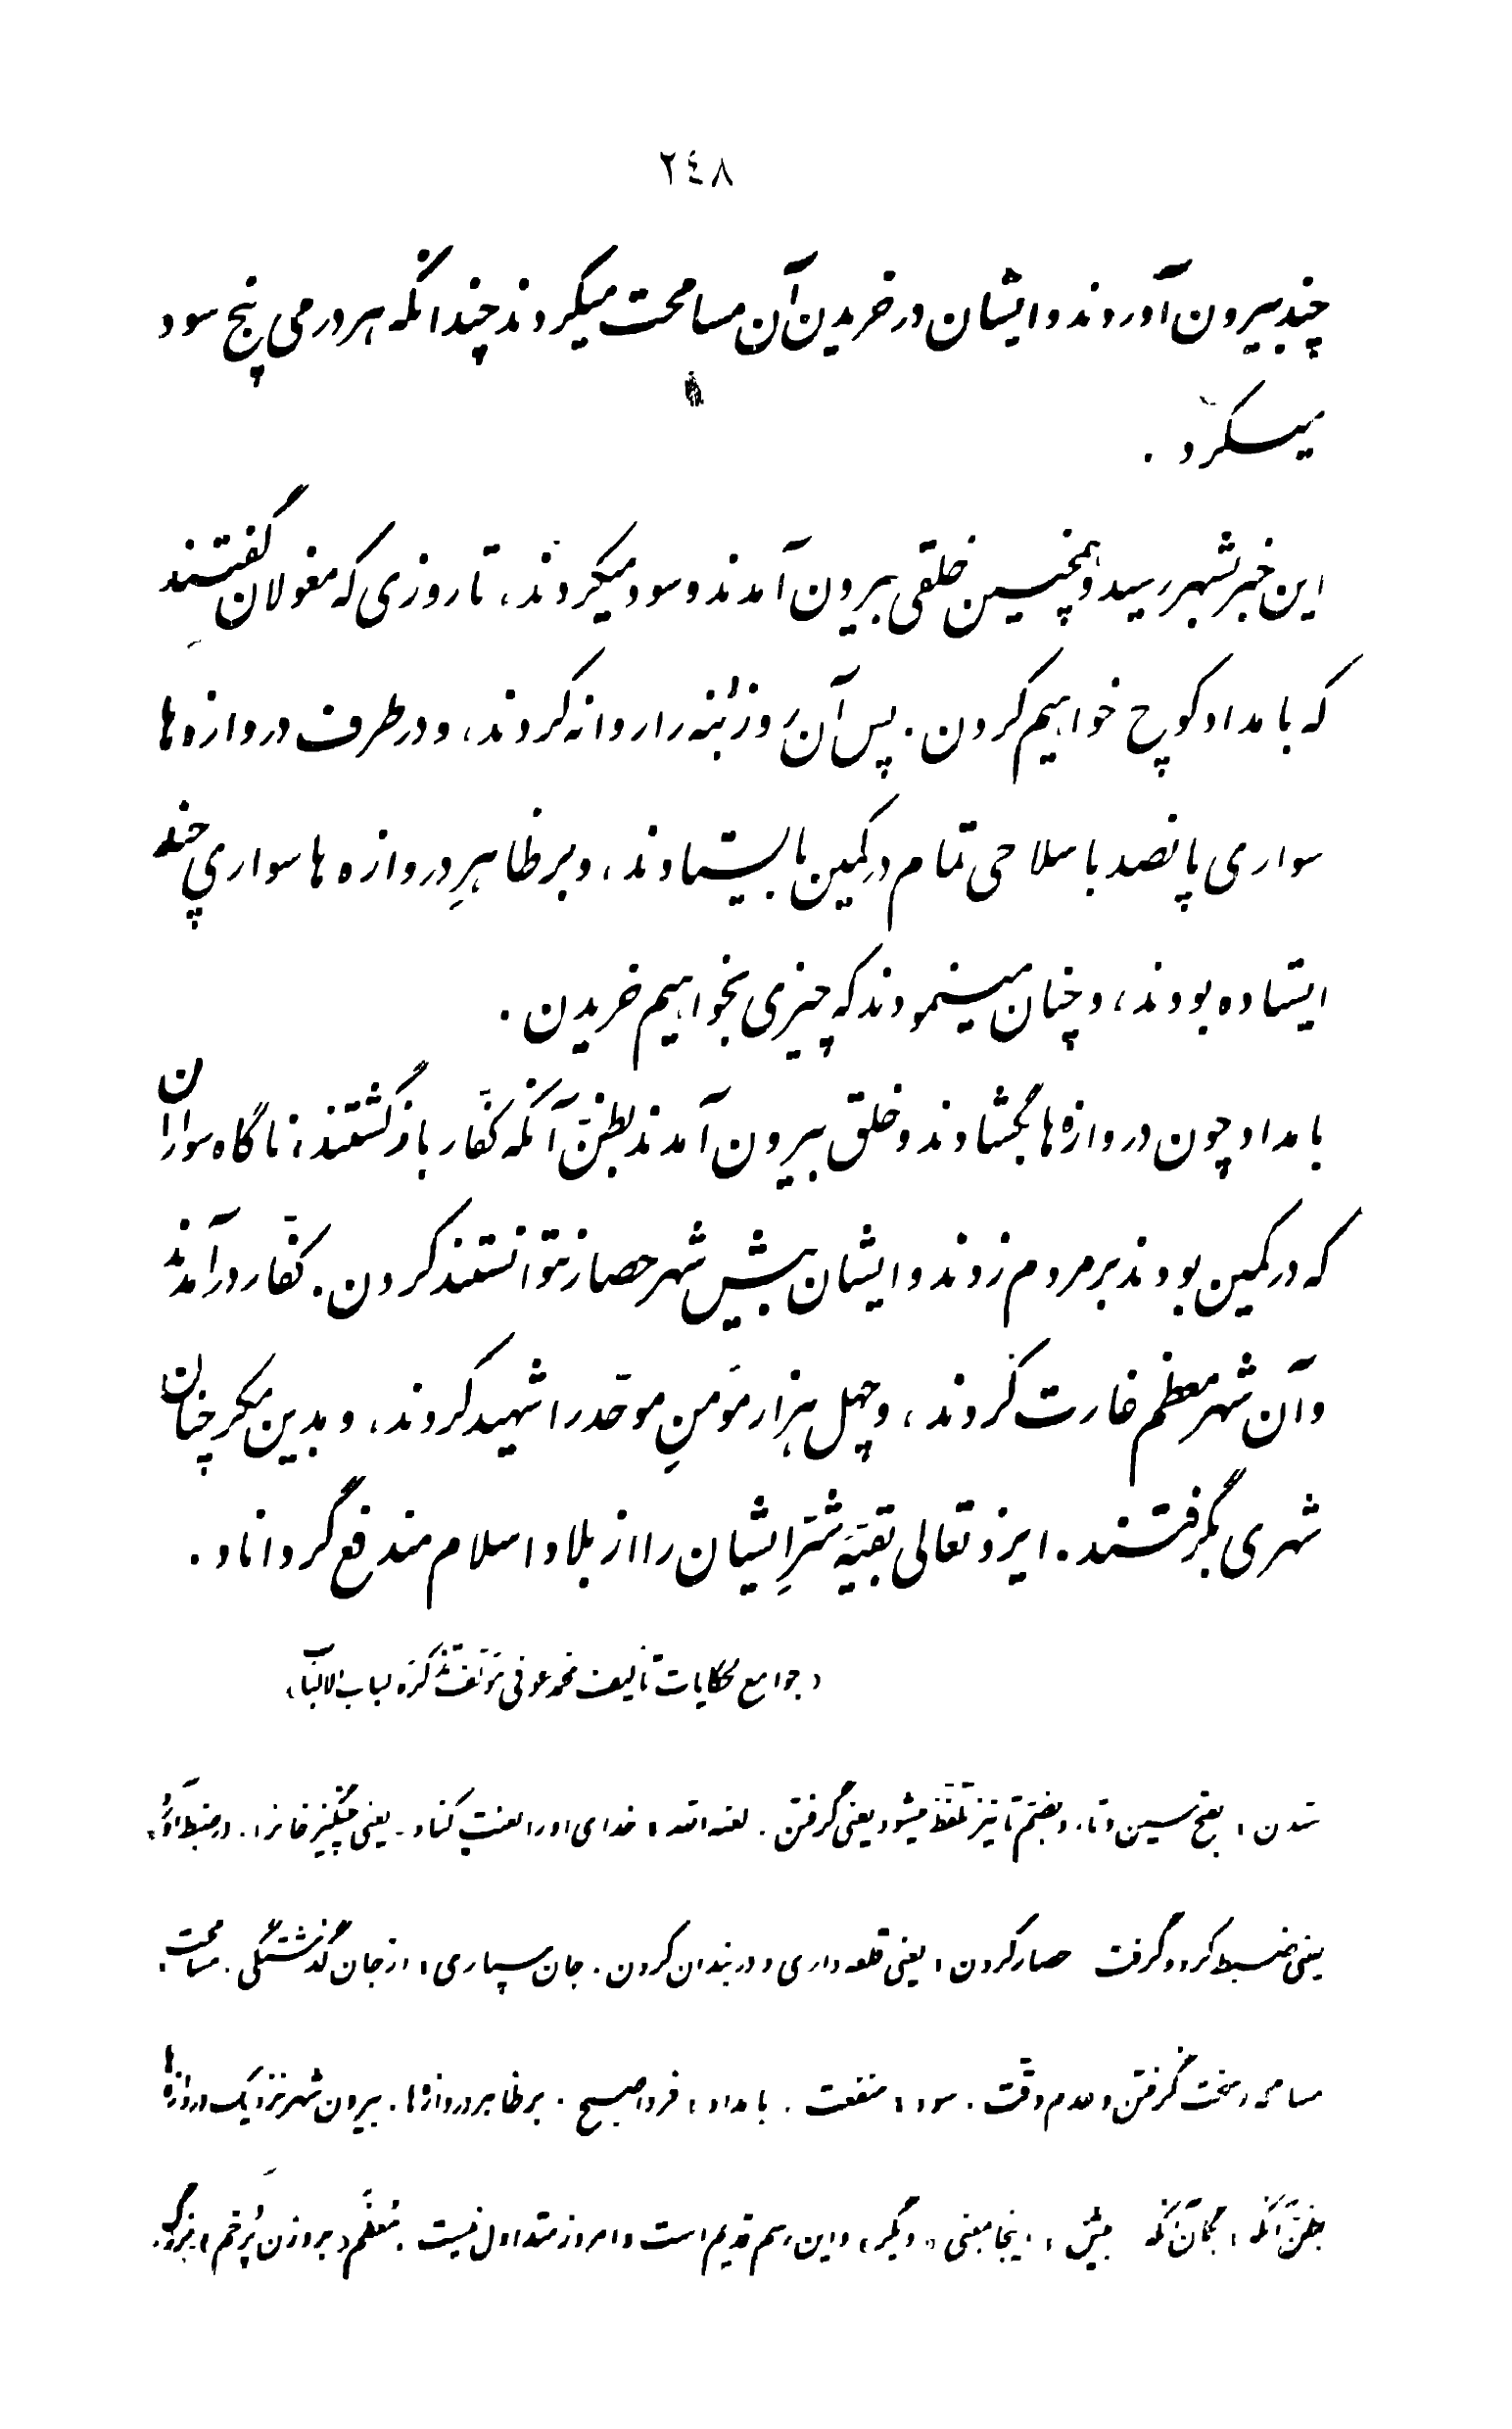 ٢٤٨
چند بیرون آوردند و ایشان در خریدن آن مسامحت میکردند چندانکه هر درمی پنج سود
میکرد .
این خبر بشهر رسید و همچنین خلقی بیرون آمدند و سود میکردند، تا روزی که مغولان گفتند
که بامداد کوچ خواهیم کردن . پس آن روز بُنه را روانه کردند، و در طرف دروازه‌ها
سواری پانصد با سلاحی تمام در کمین بایستادند، و بر ظاهرِ دروازه‌ها سواری چند
ایستاده بودند، و چنان مینمودند که چیزی بخواهیم خریدن .
بامداد چون دروازه‌ها بگشادند و خلق بیرون آمدند بظنّ آنکه کفّار بازگشتند، ناگاه سواران
که در کمین بودند بر مردم زدند و ایشان بیش شهر حصار نتوانستند کردن . کفّار درآمدند
و آن شهر معظم غارت کردند، و چهل هزار مؤمنِ موحّد را شهید کردند، و بدین مکر چنان
شهری بگرفتند . ایزد تعالی بقیّهٔ شرّ ایشان را از بلاد اسلام مندفع گرداناد .
(جوامع الحکایات تألیف محمد عوفی مؤلف تذکره لباب الالباب)
ستدن : بفتح سین و تا، و بضم تا نیز تلفظ میشود یعنی گرفتن . لعنه الله : خدای او را لعنت کناد . یعنی چنگیز خانرا . در ضبط آورد :
یعنی ضبط کرد و گرفت حصار کردن : یعنی قلعه داری و در بندان کردن . جان سپاری : از جان گذشتگی . مسامحت :
مسامحه و سخت نگرفتن و عدم دقت . سود : منفعت . بامداد : فردا صبح . بر ظاهر دروازه‌ها . بیرون شهر نزدیک دروازه‌ها
بظنّ آنکه : بگمان آنکه بیش : اینجا بمعنی « دیگر » و این رسم قدیم است و امروز متداول نیست . مُعظّم (بروزن پُر خم) بزرگ .